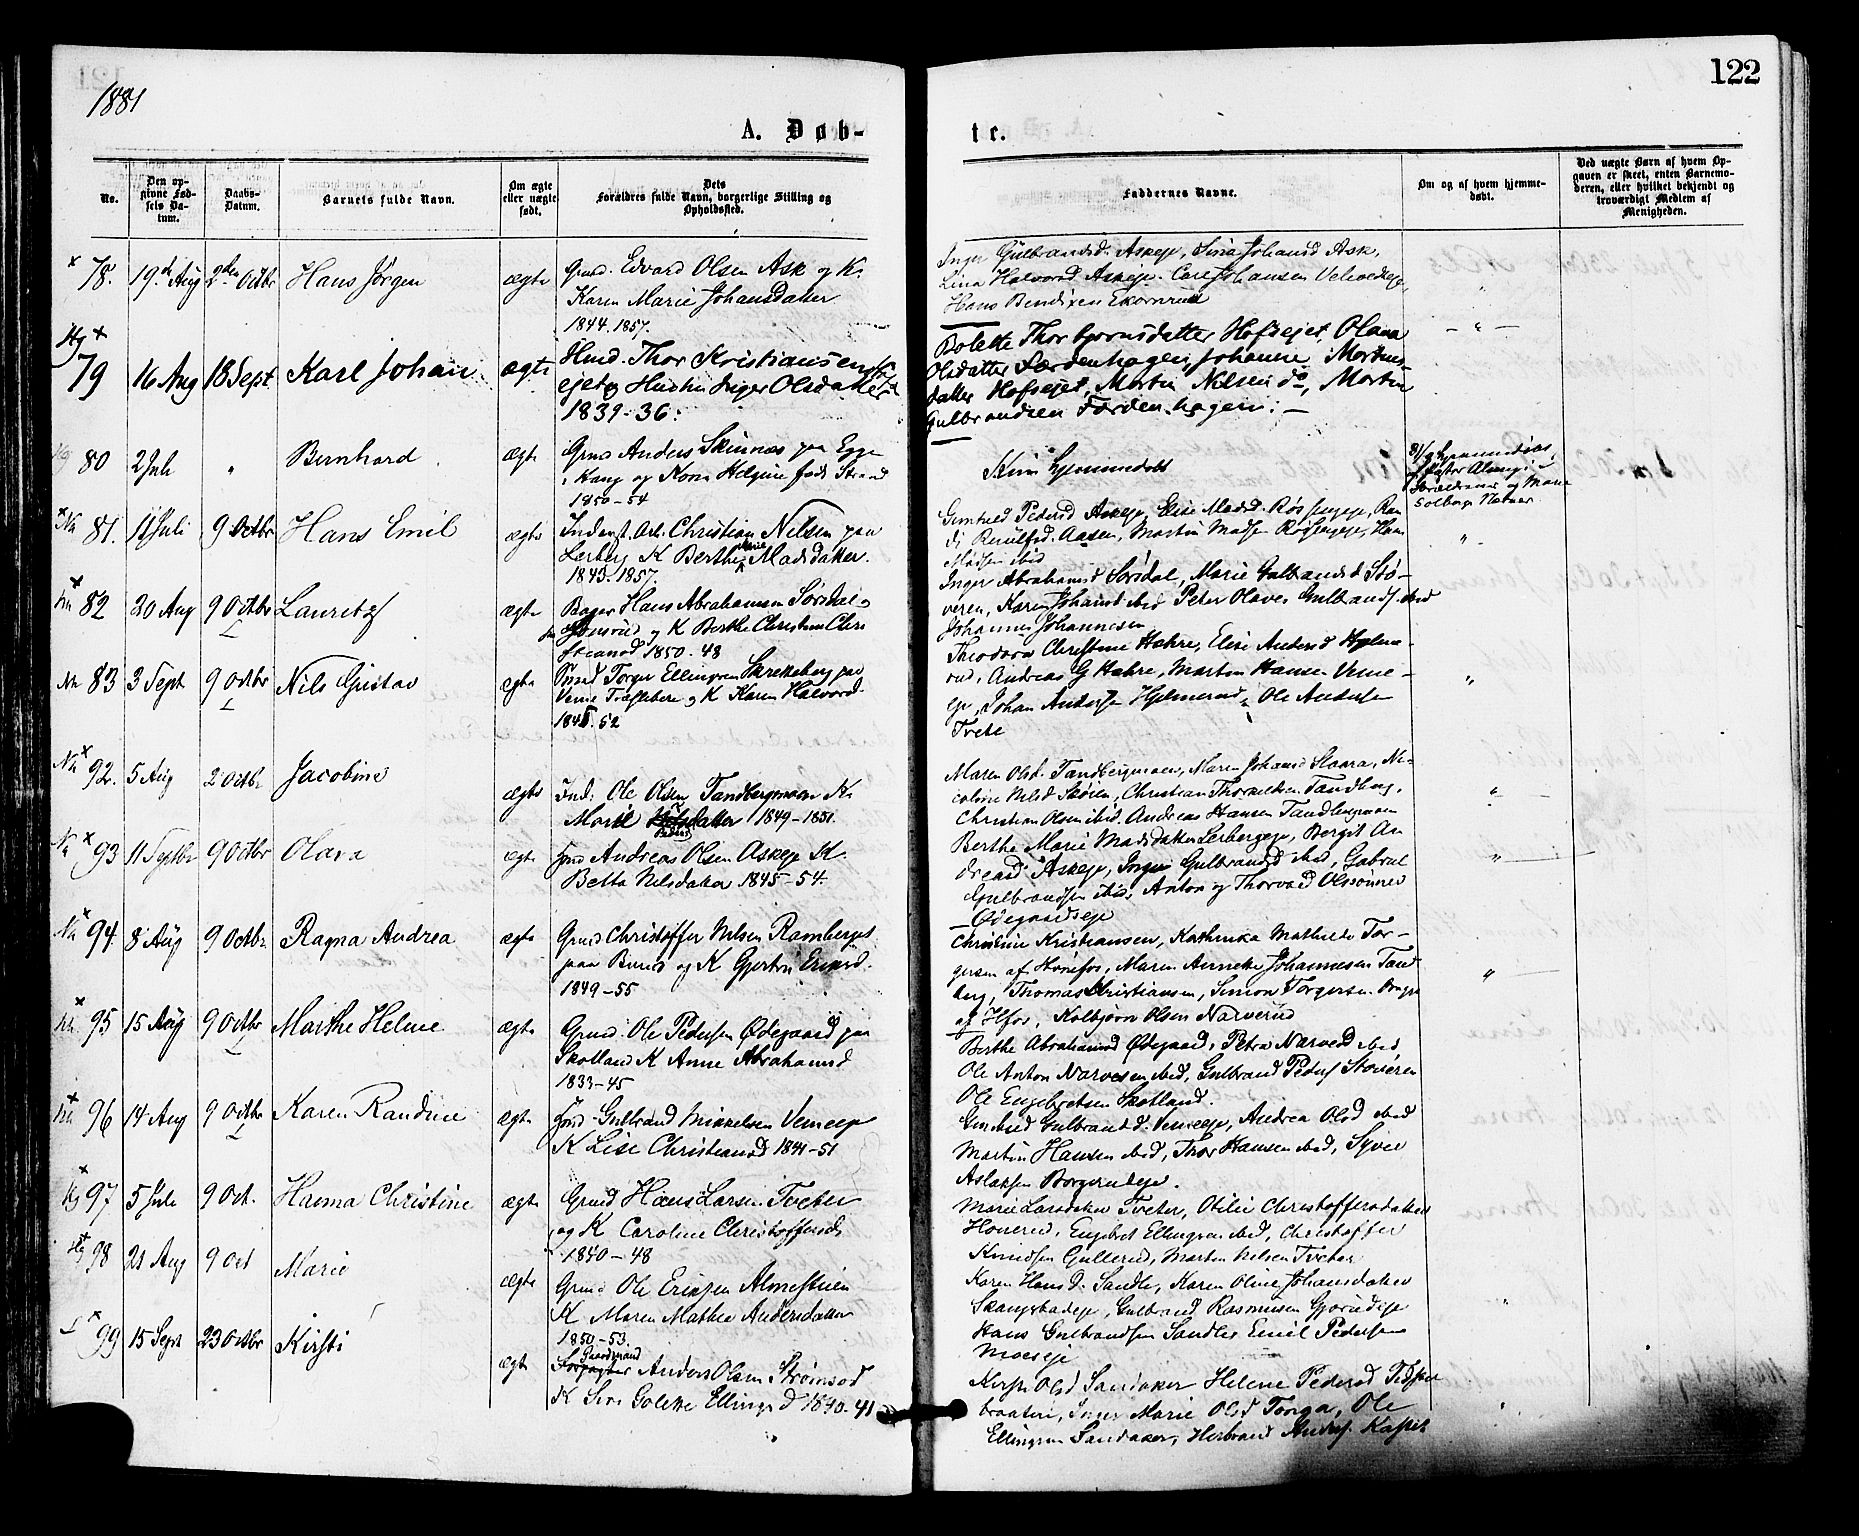 122
1881
A. Døb-
te.
No.
Den op-
givne Fød-
sels Da-
tum.
Daabs-
Datum.
Barnets fulde Navn.
Om ægte
eller uægte
født.
Dets
Forældres fulde Navn, borgerlige Stilling og
Opholdssted.
Faddernes Navne.
Om og af hvem hjemme-
døbt.
Ved uægte Børn af hvem Op-
gaven er skeet, enten Barnemo-
deren, eller hvilket bekjendt og
troværdigt Medlem af
Menigheden.
78. 19de Aug 2den Octbr Hans Jörgen ægte Grmd. Edvard Olsen Ask og K.
Karen Marie Johansdatter
1844. 1857.
Inger Gulbrandsd. Askeje, Sina Johansd Ask,
Lina Halvorsd Askeje. Carl Johansen
Hans Bendixen Ekornrud
79 16 Aug 18 Sept Karl Johan ægte Hmd. Thor Kristiansen
ejet og Hustru Inger Olsdatter
1839-36:
Bolette Thorbjørnsdatter Hofsejet, Olava
Olsdatter Færdenhagen, Johanne Mortens-
datter Hofsejet, Martin Nilsen do, Martin
Gulbrandsen Færdenhagen:-
80 2 Juli " Bernhard ægte Grmd Anders Skinnes paa Egge
og Kone Helgine født Strand
1850-54
Kun hjemmedøbt
Solberg
81. 11 Juli 9 Octbr Hans Emil ægte Inderst. Arb. Christian Nilsen paa
Lerberg K Berthe Marie Madsdatter.
1843. 1857.
Gunhild Pedersd Askeje, Elise Madsd.
Aasen, Martin Madsen
Madsen ibid
82 20 Aug 9 Octbr Lauritz ægte Bager Hans Abrahamsen Sørsdal
Hønsrud og K Berthe Christine Chri
stiansd 1850. 48
Inger Abrahamsd Sørsdal, Marie Gulbrandsd Stø-
veren, Karen Johansd ibid Peter Olaves Gulbrands. ibid
Johannes Johannesen
83 3 Sept 9 Octbr Nils Gustav ægte Torger Ellingsen Skrekkeberg paa
og K Karen Halvorsd.
52
Theodora Christine Hahre, Elise Andersd Hjelme-
rud, Andreas G Hahre, Martin Hansen Veme-
eje, Johan Andersen Hjelmerud, Ole Andersen
Tvete
92. 5 Aug 2 Octbr Jacobine ægte Ind. Ole Olsen Tandbergmoen K.
Marie Pedersdatter 1849-1851.
Maren Olsd. Tandbergmoen, Maren Johansd Skaara, Ni-
coline Nilsd Skøien, Christian Thorvaldsen Tandberg,
Christian Olsen ibid. Andreas Hansen Tandbergmoen
93 11 Septbr 9 Octbr Olava ægte Andreas Olsen Askeje K.
Betta Nilsdatter 1845-54.
Berthe Marie Madsdatter Lerbergeje, Bergit An
dreasd Askeje, Inger Gulbrandsd ibid, Gabriel
Gulbrandsen ibid, Anton og Thorvald Olssønner
Ødegaardseje
94. 8 Aug 9 Octbr. Ragna Andrea ægte Grmd Christoffer Nilsen Ramberget
paa Burud og K Gjertru Eriksd.
1849-55
Christine Kristiansen, Kathrinka Mathilde Tor-
gersen af Hønefos, Maren Annette Johannesen Tand
berg, Thomas Christiansen, Simon Torgersen
af Hfos, Kolbjørn Olsen Narverud
95 15 Aug 9 Octbr Marthe Helene ægte Grmd. Ole Pedersen Ødegaard paa
Skotland K Anne Abrahamsd
1833-45
Berthe Abrahamsd Ødegaard, Petra Narvesd ibid
Ole Anton Narvesen ibid, Gulbrand Peders Støveren
Ole Engebretsen Skotland.
96 14 Aug 9 Octbr Karen Randine ægte Gulbrand Mikkelsen Vemeeje
K Lise Christiansd 1841-51
Gunhild Gulbrandsd. Vemeeje, Andrea Olsd ibid
Martin Hansen ibid, Thor Hansen ibid, Syver
Aslaksen Borgerudeje.
97 5 Juli 9 Oct. Hanna Christine ægte Grmd Hans Larsen Tveter
og K Caroline Christoffersd.
1840-48
Marie Larsdatter Tveter, Otilie Christoffersdatter
Hovrud, Engebret Ellingsen ibid, Christoffer
Knudsen Gullerud, Martin Nilsen Tveter
98 21 Aug 9 Oct Marie ægte Grmd Ole Eriksen Almestuen
K Maren Mathea Andersdatter
1850-53.
Karen Hansd. Sandler, Karen Oline Johansdatter
Skaugstadeje, Gulbrand Rasmusen Gjørudeje
Hans Gulbrandsen Sandler Emil Pedersen
Moeseje
99 15 Sept 23 Octbr Kirsti ægte Gaardmand Anders Olsen Strømsod
K Siri Golette Ellingsd 1840-41
Olsd Sandaker Helene Pedersd
braaten, Inger Marie Olsd Tonga, Ole
Ellingsen Sandaker, Herbrand Anders.